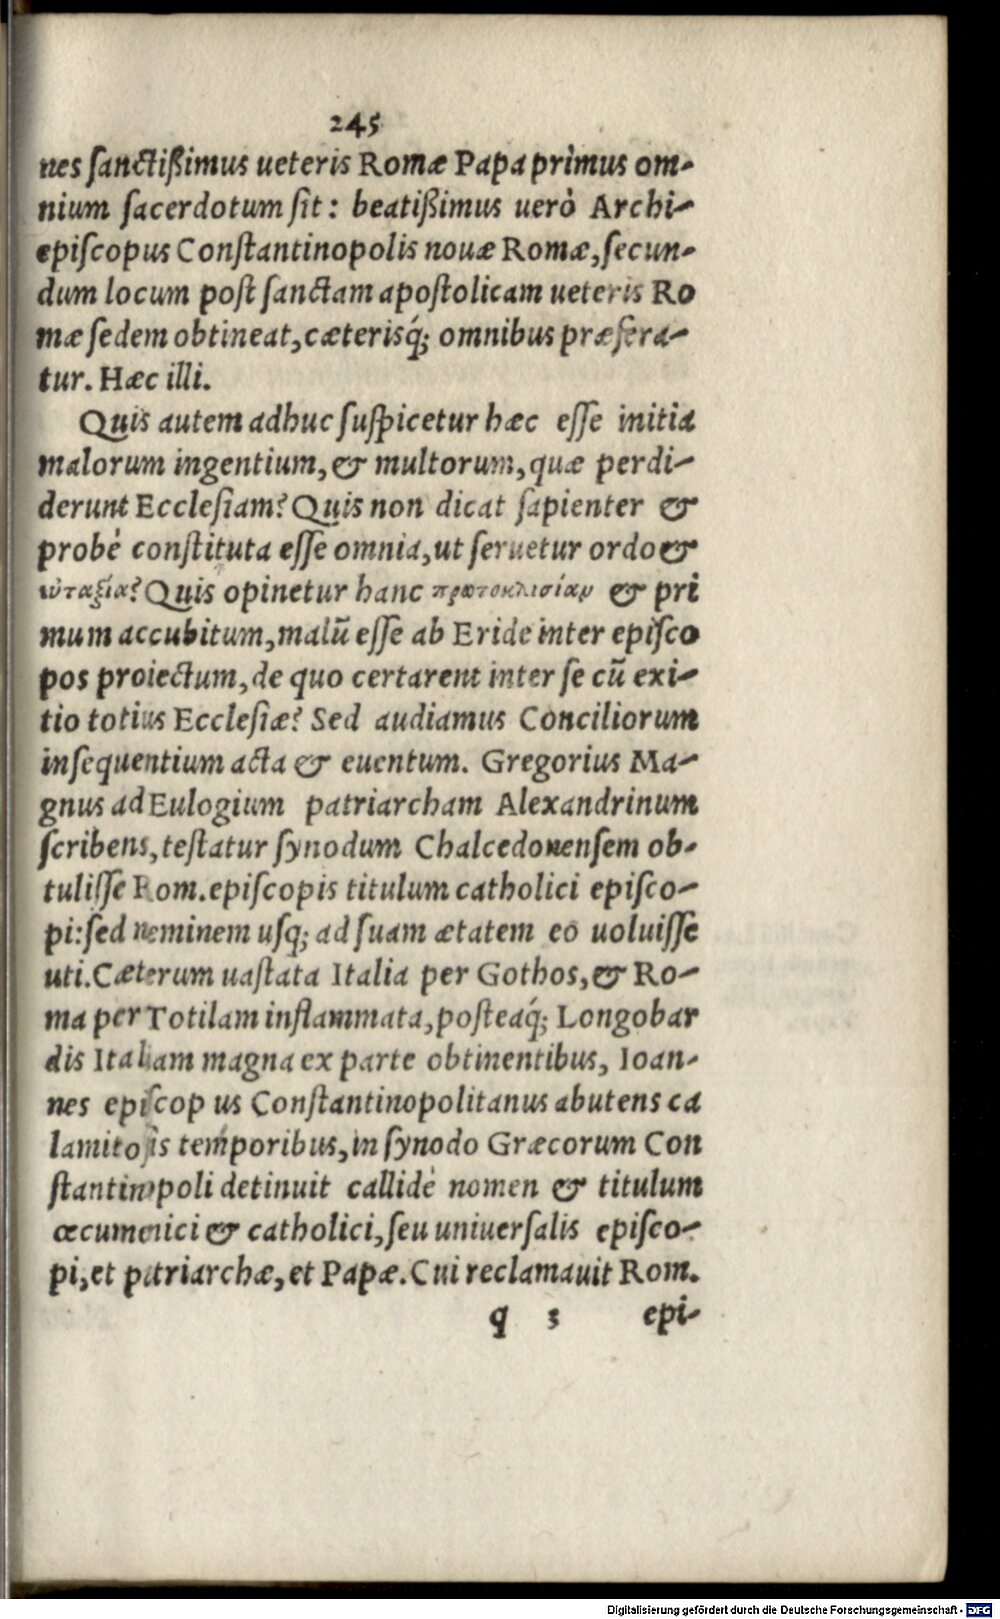 245
nes sanctißimus ueteris Romæ Papa prìmus om-
nium sacerdotum sit: beatißimus uerò Archi-
episcopus Constantinopolis nouæ Romæ, secun-
dum locum post sanctam apostolicam ueteris Ro
mæ sedem obtineat, cæterisq́; omnibus præfera-
tur. Hæc illi.
Quis autem adhuc suspicetur hæc esse initia
malorum ingentium, & multorum, quæ perdi-
derunt Ecclesiam? Quis non dicat sapienter &
probè constituta esse omnia, ut seruetur ordo &
εὐταξία? Quis opinetur hanc πρωτοκλισίαν & pri
mum accubitum, malũ esse ab Eride inter episco
pos proiectum, de quo certarent inter se cũ exi-
tio totius Ecclesiæ? Sed audiamus Conciliorum
insequentium acta & euentum. Gregorius Ma-
gnus ad Eulogium patriarcham Alexandrinum
scribens, testatur synodum Chalcedonensem ob-
tulisse Rom. episcopis titulum catholici episco-
pi: sed neminem usq; ad suam ætatem eo uoluisse
uti. Cæterum uastata Italia per Gothos, & Ro-
ma per Totilam inflammata, posteaq́; Longobar
dis Italiam magna ex parte obtinentibus, Ioan-
nes episcop us Constantinopolitanus abutens ca
lamitosis temporibus, in synodo Græcorum Con
stantinopoli detinuit callidè nomen & titulum
œcumenici & catholici, seu uniuersalis episco-
pi, et patriarchæ, et Papæ. Cui reclamauit Rom.
q 3 epi-
Digitalisierung gefördert durch die Deutsche Forschungsgemeinschaft - DFG